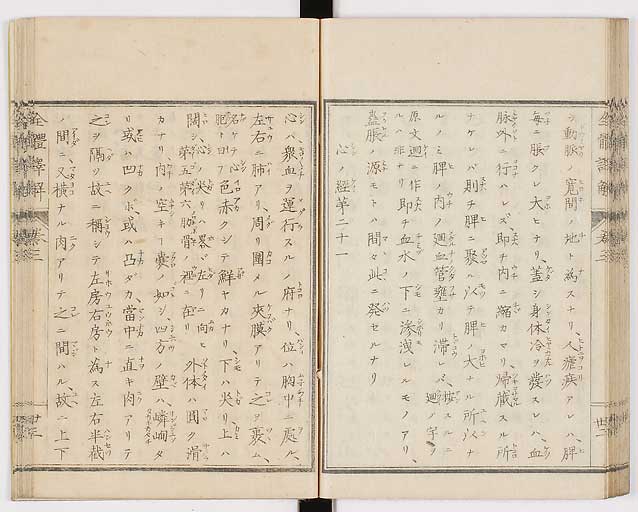 シ動脈ノ寛間ノ地ト為スナリ、人瘧疾アレハ、脾
毎ニ脹クレ大ヒナリ、蓋シ身体冷ヲ発スレハ、血
脉外ニ行ハレズ、即チ内ニ縮カマリ、帰蔵スル所
ナケレバ則チ脾ニ聚ル以テ脾ノ大ナル所以ナ
ルノミ脾ノ内ノ廻血管壅カリ滞レバ、按スルニ廻ノ字ヲ
原文迴ニ作ルハ非ナリ即チ血水ノ下ニ滲洩レルモノアリ、
蠱脹ノ源モトハ間々此ニ発セルナリ
心ノ経第二十一
心ハ、衆血ヲ運行スルノ府ナリ、位ハ胸中ニ處ル、
左右ニ肺アリ、周リ圍メル夾膜アリテ之ヲ裹ム、
名ケテ心胞ト曰フ色赤クシテ鮮ヤカナリ、下ハ尖リ上ハ
闊シ、心ノ尖リハ畧ボ左リニ向ヒ、外体ハ圓ク滑
カナリ、内ノ空キ一嚢ノ如シ、四方ノ壁ハ、嶙峋タ
リ或ハ凹クボ或ハ凸ダカ、當中ニ直キ肉アリテ
之ヲ隔ツ故ニ稱シテ左房右房ト為ス左右半截
ノ間ニ、又横ナル肉アリテ之ニ間ハル、故ニ上下
全體譯解
巻三